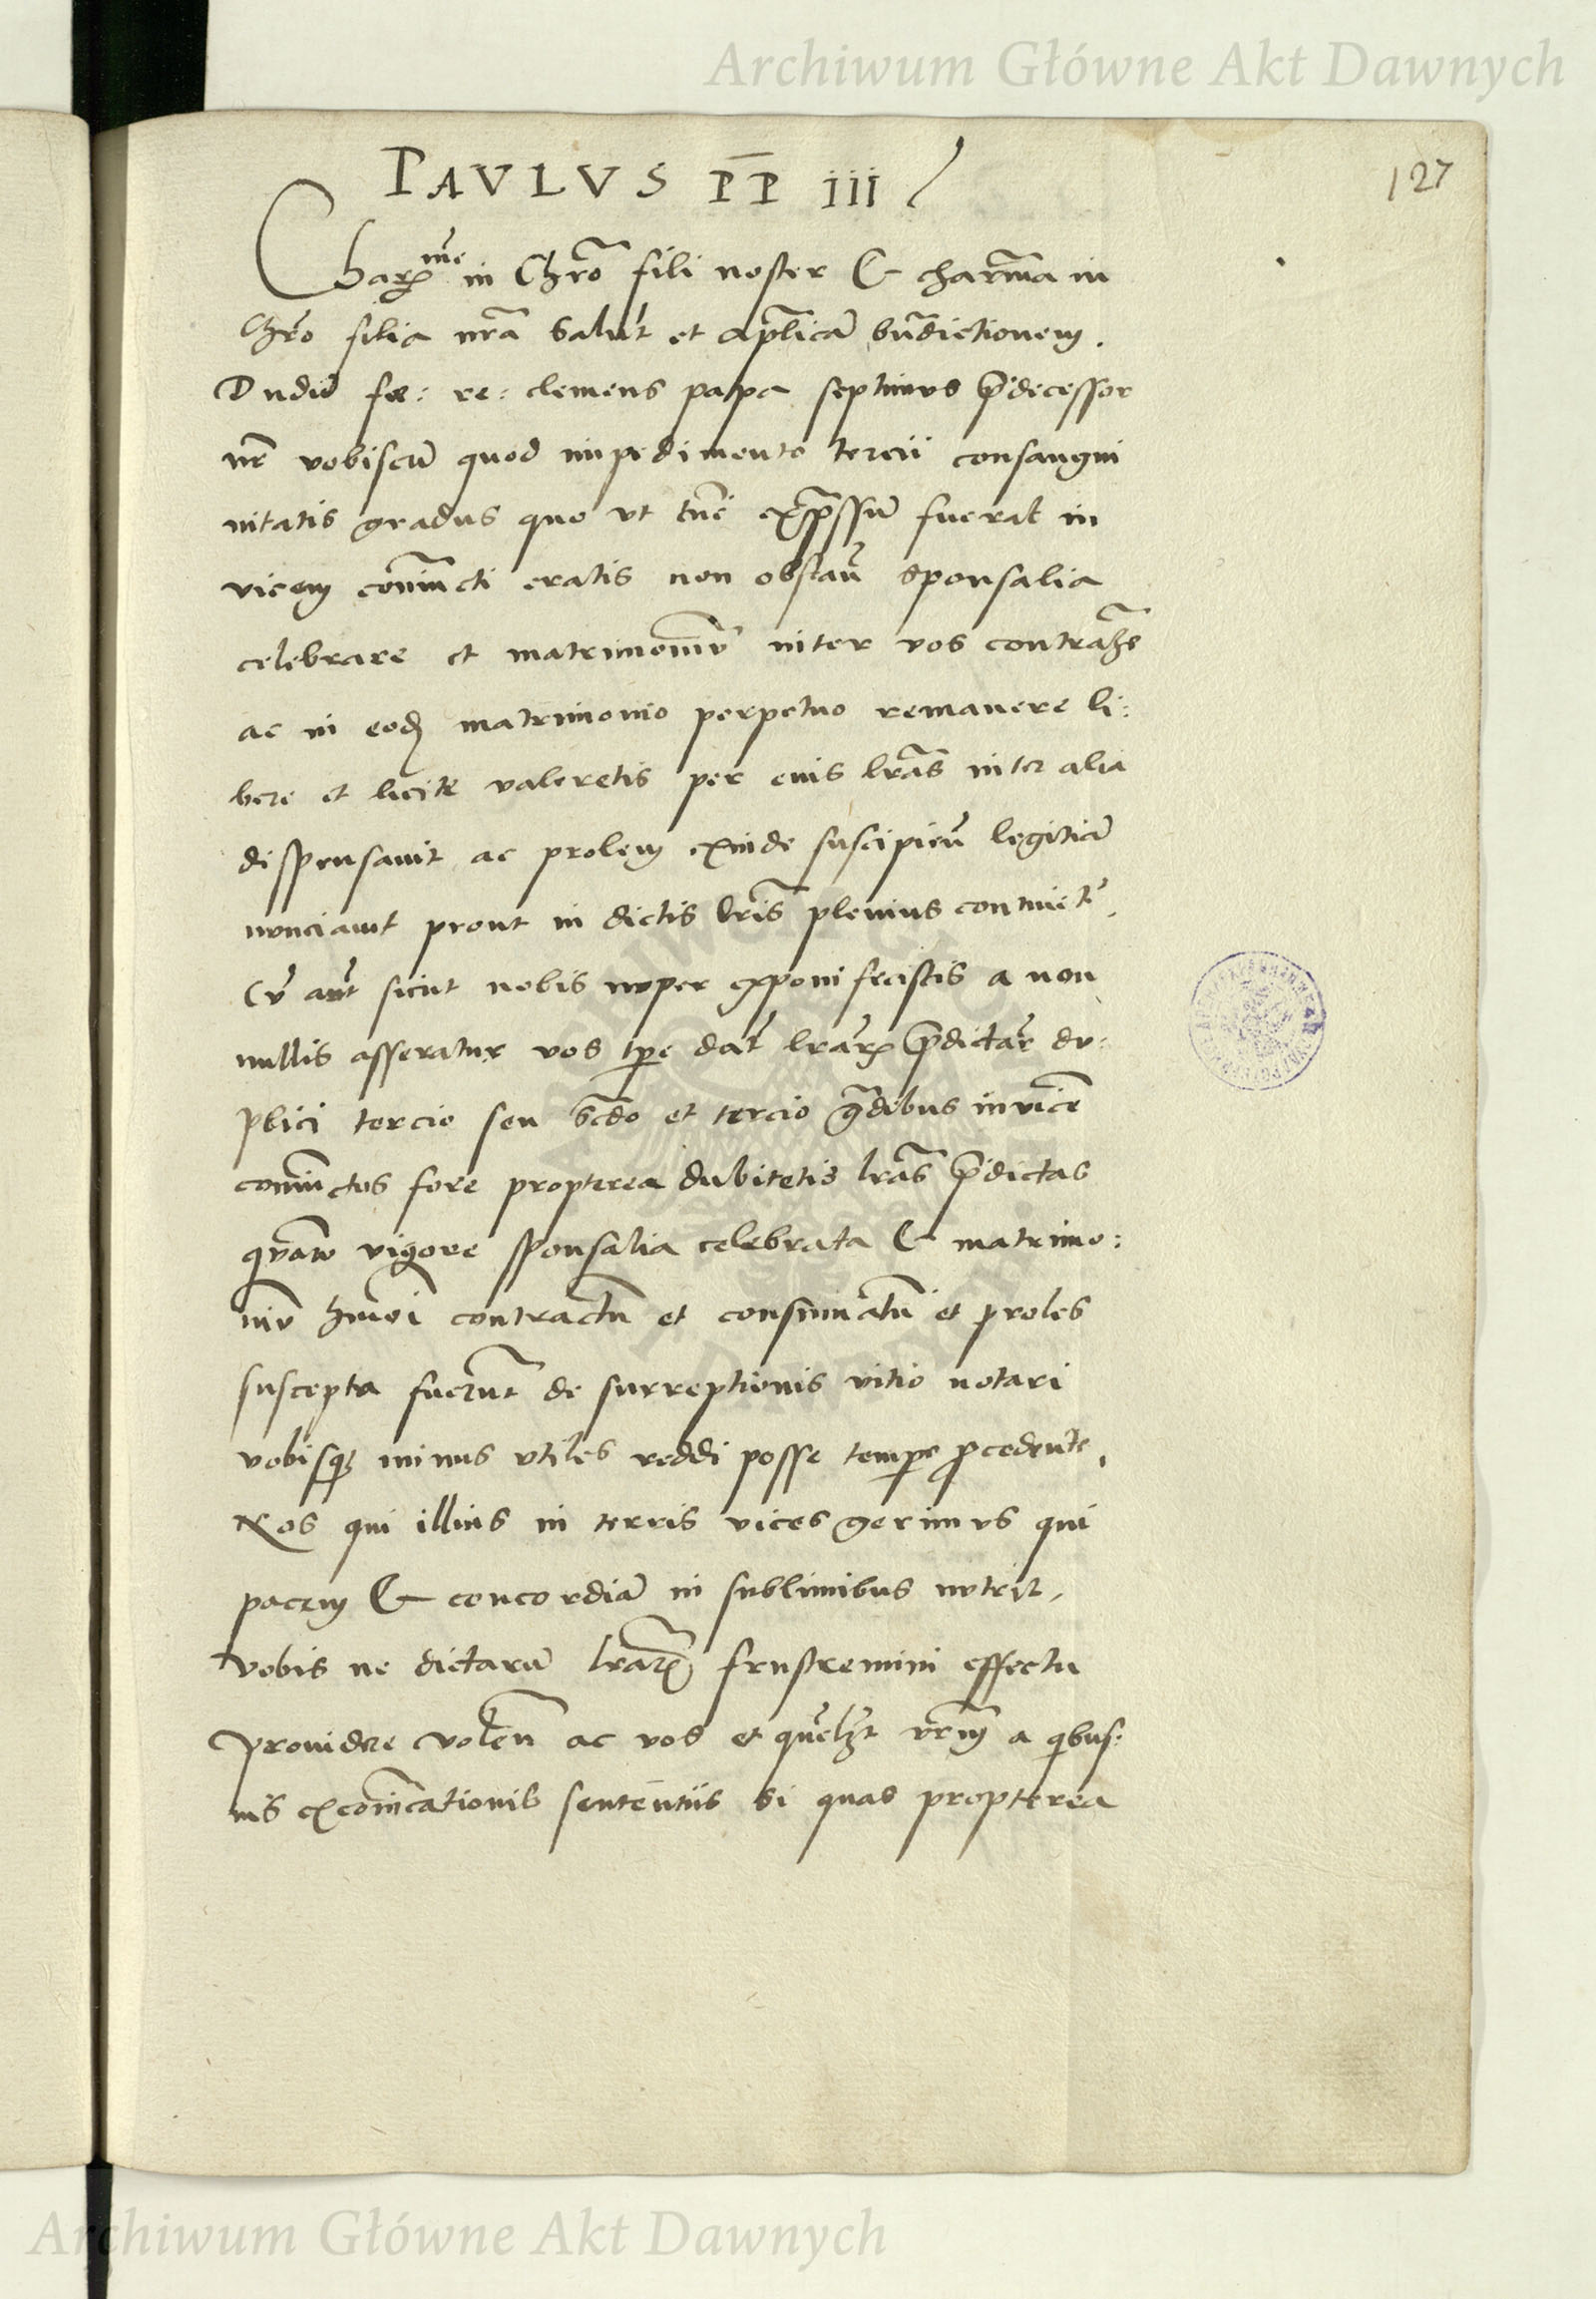 Archiwum Główne Akt Dawnych
127
PAVLVS PP III
Char.me in Chr̃o fili noster & char̃ma in
Chr̃o filia nr̃a Salut̃ et Apl̃icã bñdictionem.
Dudũ fe: re: clemens papa septimus p̃decessor
nr̃ vobiscũ quod impedimento tercii consangui
nitatis gradus quo vt tunc exp̃ssũ fuerat in
vicem coniũcti eratis non obstañ Sponsalia
celebrare et matrimoniũ inter vos contrahẽ
ac in eodẽ matrimonio perpetuo remanere li:
bere et licite valeretis per euis lr̃as inter alia
dispensauit ac prolem exinde suscipieñ legitiã
nunciauit prout in dictis lr̃is plenius continet̃.
Cũ aut̃ sicut nobis nuper exponi fecistis a non
nullis asseratur vos tp̃e dat̃ lr̃ar̃ p̃dictar̃ du:
plici tercio seu sc̃do et tercio g̃dibus inuicẽ
coniũctos fore propterea dubitetis lr̃as p̃dictas
vigore sponsalia celebrata & matrimo:
niũ hm̃oi contractũ et consum̃atũ et proles
suscepta fuerunt̃ de surreptionis vitio notari
vobisq; minus vtiles reddi posse tempe p̃cedente.
Nos qui illius in terris vices gerimus qui
pacem & concordiã in sublimibus nutrit,
vobis ne dictarũ lr̃arũ frustremini effectu
prouidere voleñ ac vos et quẽlz̃t vr̃m̃ a qibus:
uis excõicationis sententiis si quas propterea
Archiwum Główne Akt Dawnych